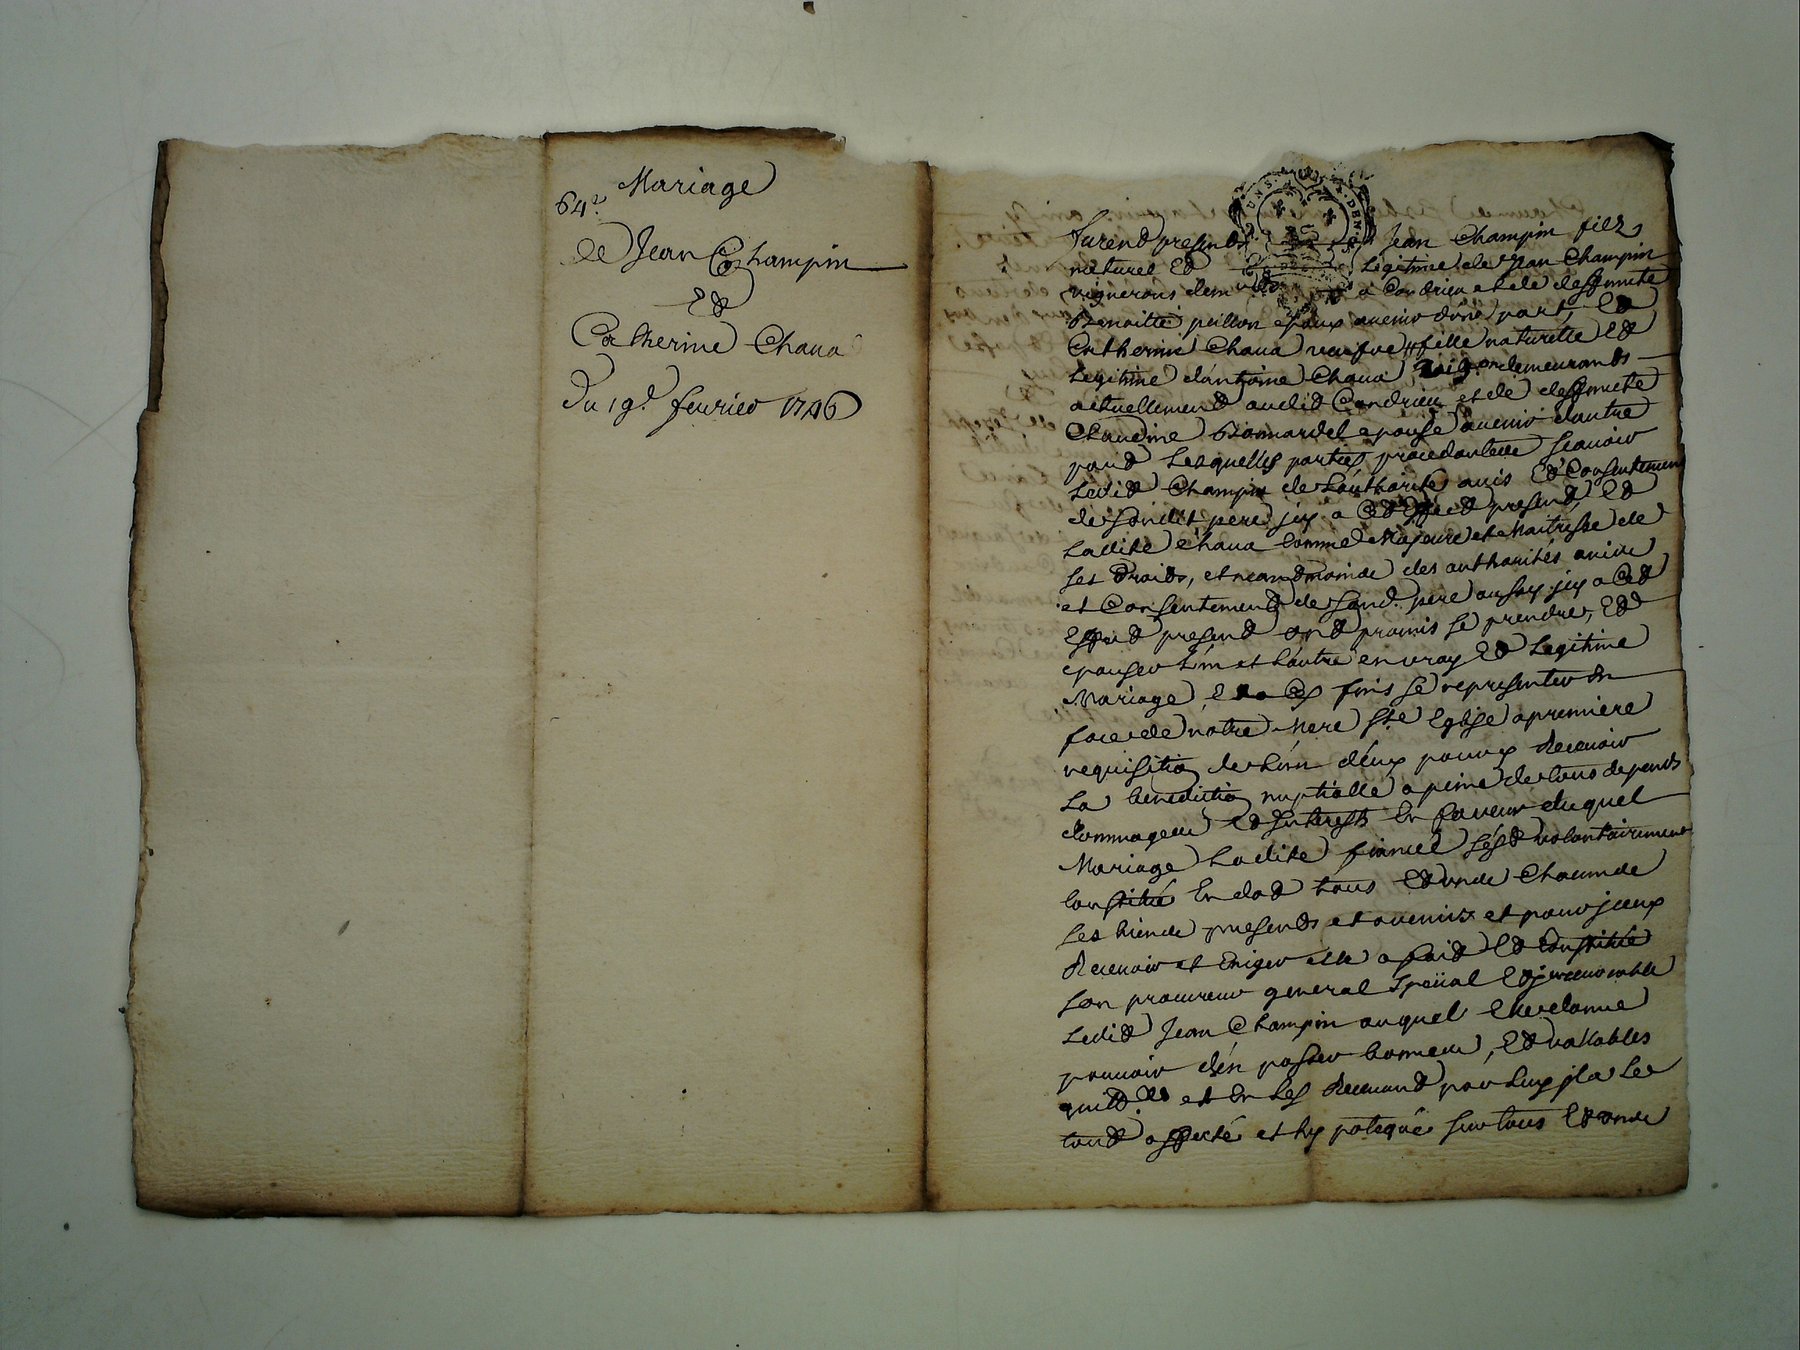 Mariage
64e
de Jean Champin
Et
Catherine Chaua
Du 19e feurier 1746
furent presents Jean Champin filz
naturel Et Legitime de Jean Champin
vignerons dem a Condrieu et de deffuncte
Benoitte peillon epoux auenir d'une part, Et
Catherine Chaua veufue fille naturelle Et
Legitime d'antoine Chaua demeurants
actuellement audit Condrieu et de deffuncte
Claudine Bonnardel epouse auenir d'autre
part Lesquelles parties procedantes scauoir
Ledit Champin de L'authorité auis Et Consentement
de Sondit pere icy a Cet Effect present, Et
Ladite Chaua Comme Majeure et Maitresse de
Ses Droits, et neantmoins des authorités auis
et Consentement de Sond. pere aussy icy a Cet
Effect present ont promis se prendre, Et
epouser L'un et L'autre en vray Et Legitime
Mariage, Et a Ces fins se representer En
face de notre Mere Ste Eglise a premiere
requisition de L'un d'eux pour y Receuoir
La benediction nuptialle a peine de tous depends
dommages Et Interests En faueur duquel
Mariage Ladite fiancée s'est volontairement
Constitué En dot tous Et uns Chacuns
Ses biens presents et auenirs et pour jceux
Receuoir et Exiger elle a fait Et Constitué
Son procureur general Special Et jrreuocable
Ledit Jean Champin auquel Elle donne
pouuoir d'en passer bonnes, Et vallables
quitt.ces et En Les Receuant par Luy jl a Le
tout affecté et hypotequé Sur tous Et uns